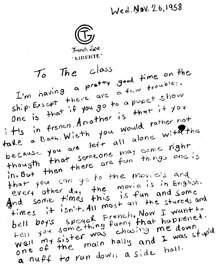 Wed. Nov. 26, 1958
French Line
"LIBERTÉ"
To The class
I'm having a pretty good time on the
ship. Except there are a few troubles.
One is that if you go to a puppet show
it's in french. Another is that if you
take a Bath. Wich you would rather not
because you are left all alone with the
thought that someone may come right
in. But then there are fun things one is
that you can go to the movies and
every other day the movie is in English.
And some times this is fun and some
times it isn't. All most all the stureds and
bell boys speek French. Now I want to
tell you something funny that happened.
Well my sister was chasing me down
one of the main hally and I was stupid
a nuff to run down a side hall.